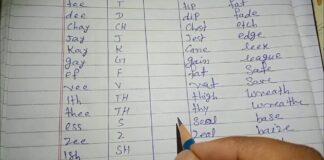 tee T tip fat
dee D dip fade
Chay CH Chest etch
Jay J Jest edge
Kay K Cane leek
gay G gain league
ef F fat Safe
vee V vat Save
ith TH thigh wreath
thee TH thy wreathe
ess S Seal base
zee Z Zeal baize
ish SH